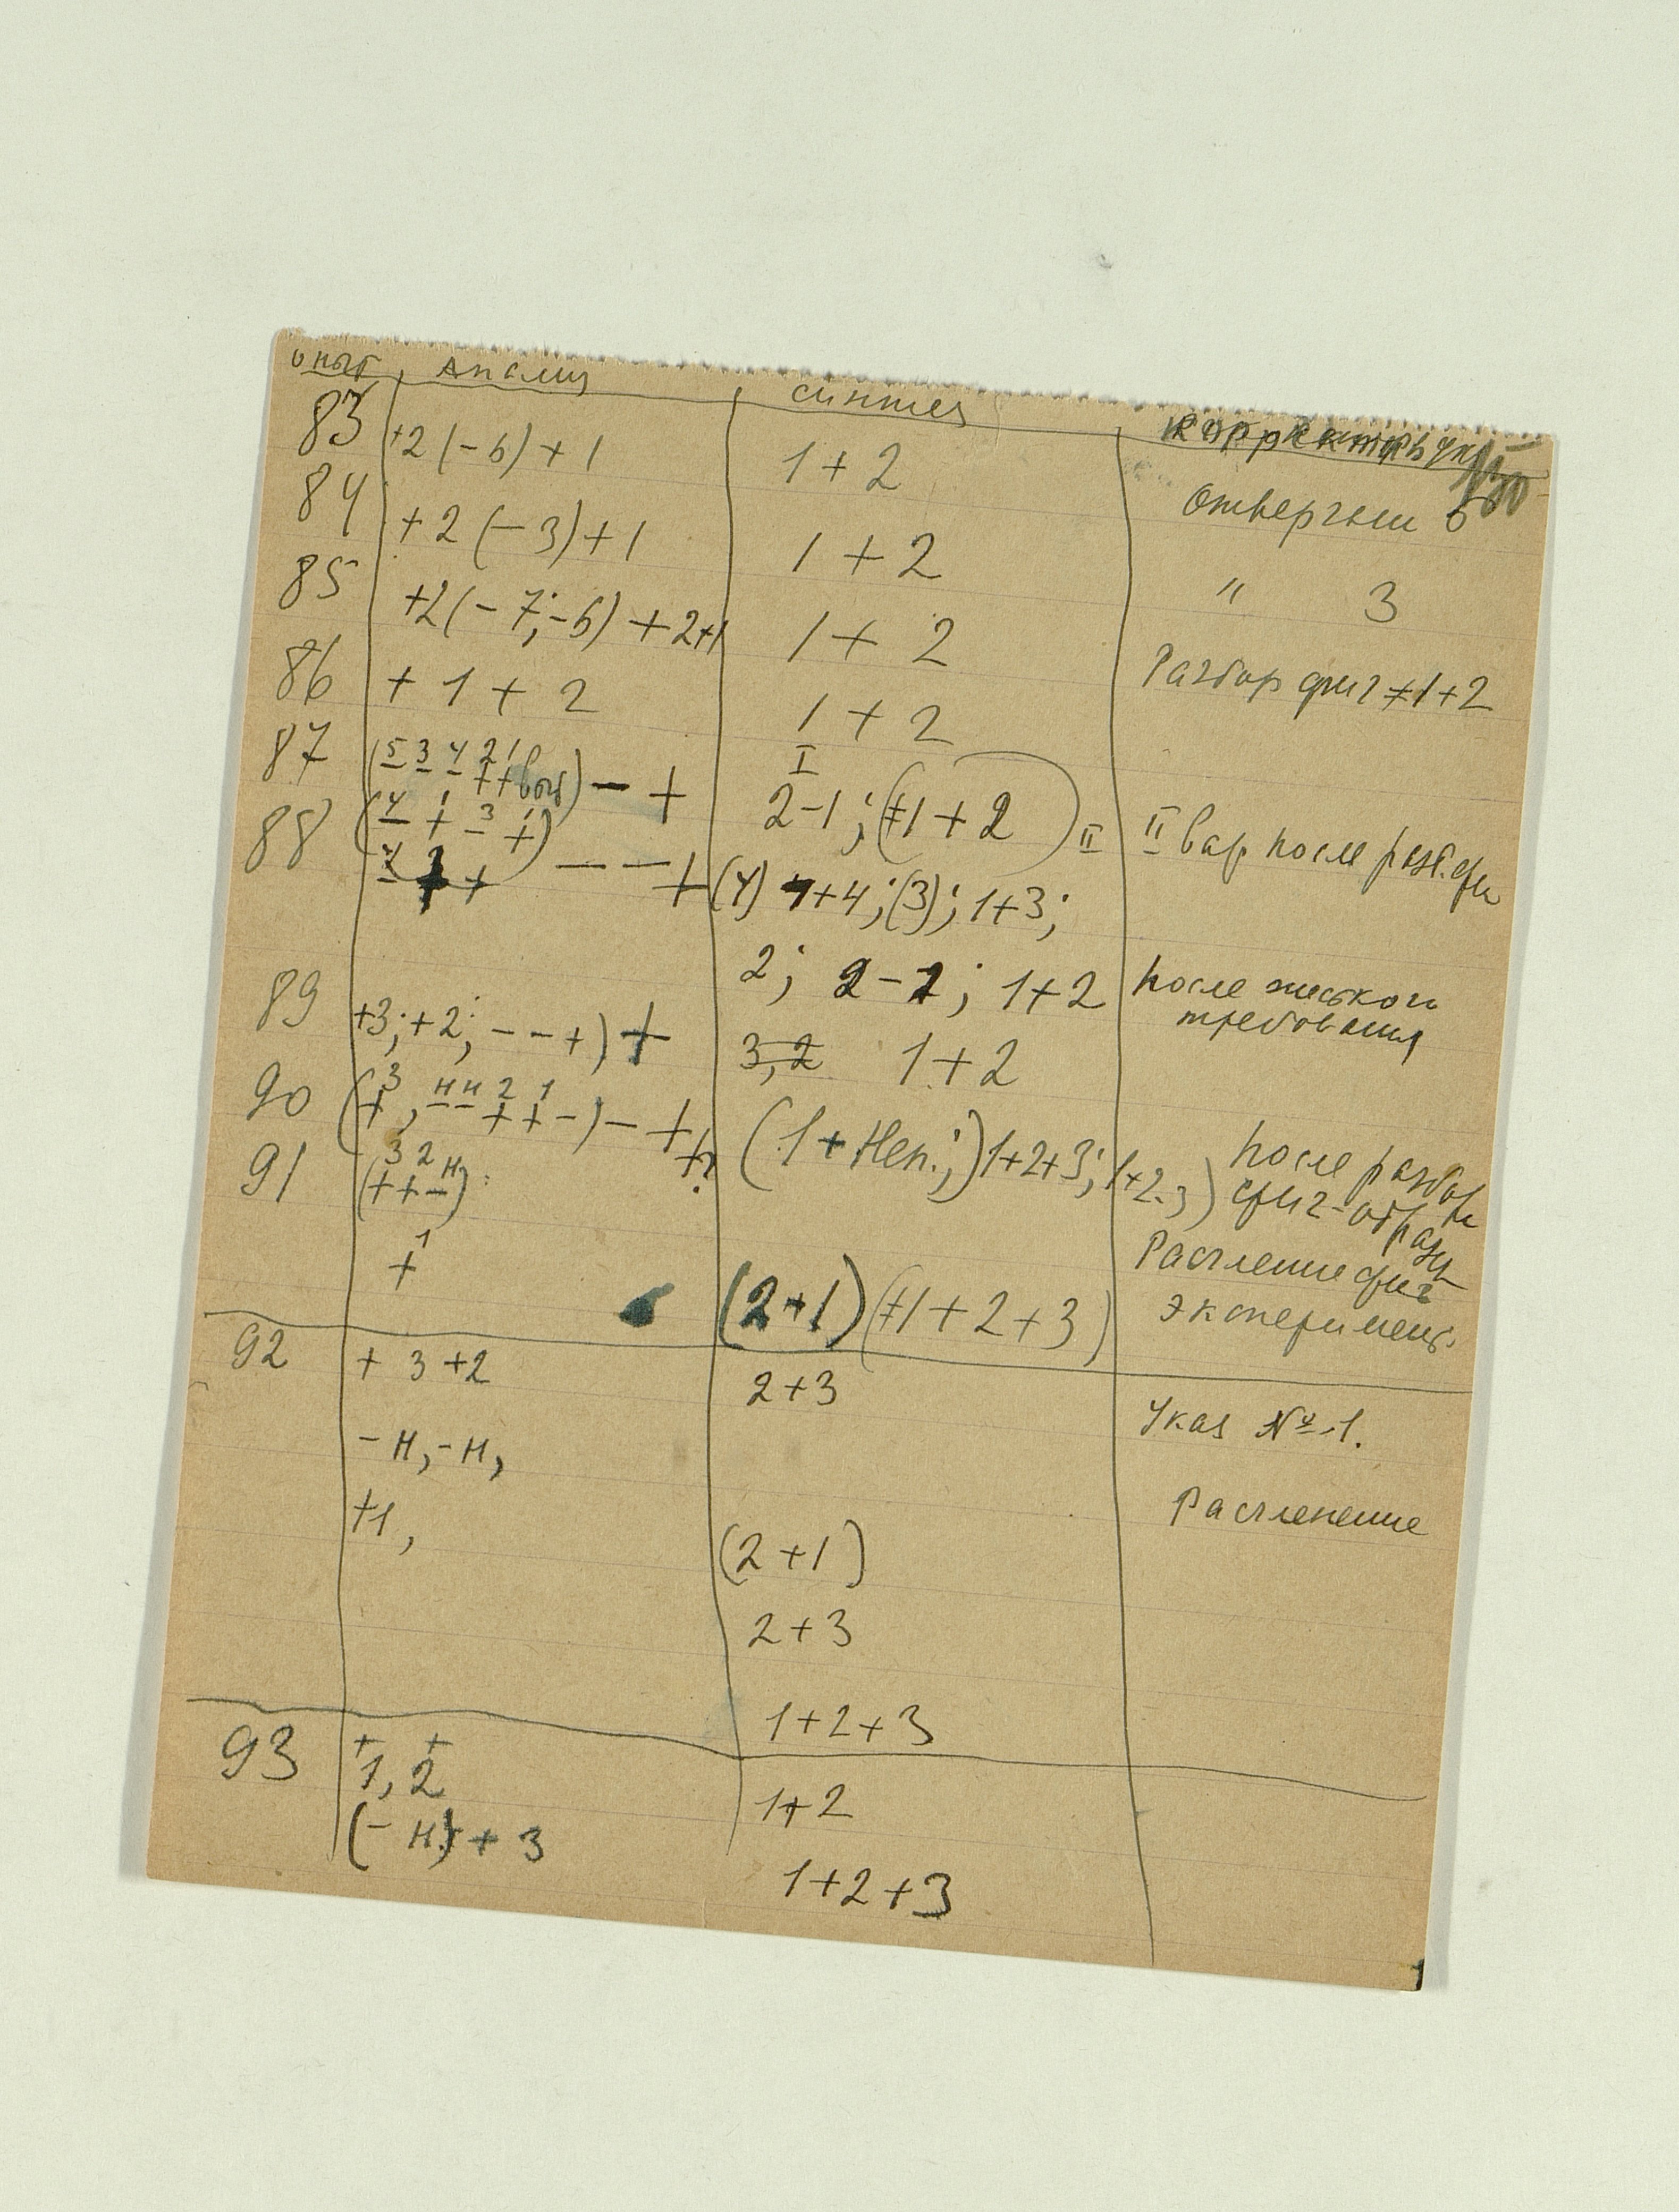 опыт Анализ синтез
83 +2 (-6) + 1 1 + 2 Отвергны 6
84 + 2 (- 3) + 1 1 + 2 " 3
85 +2 (- 7; -6) + 2+1 1 + 2 Разбор фиг ≠ 1+2
86 + 1 + 2 1 + 2
I
87 5 3 4 2 1 - + 2-1; (+1 + 2) II II вар после разб. фи
88 4 1 3 1
- - + (4) 4+4; (3); 1+3;
2; 2-1; 1+2 После жесткого
требования
89 +3; +2; - - +) + 3,2 1+2
90 (+3, -н -н +2 +1 -) - + (1 + Неп.;) 1+2+3; 1+2-3) После разбора
фиг-образц
91 (+3 +2 -н) Расчление фиг
+1 (2+1) (+1+2+3) эксперимент.
92 + 3 +2 2+3 Указ № 1.
- н, - н,
+1, Расчленение
(2+1)
2+3
1+2+3
93 + +
1, 2 1+2
(- н) + 3
1+2+3